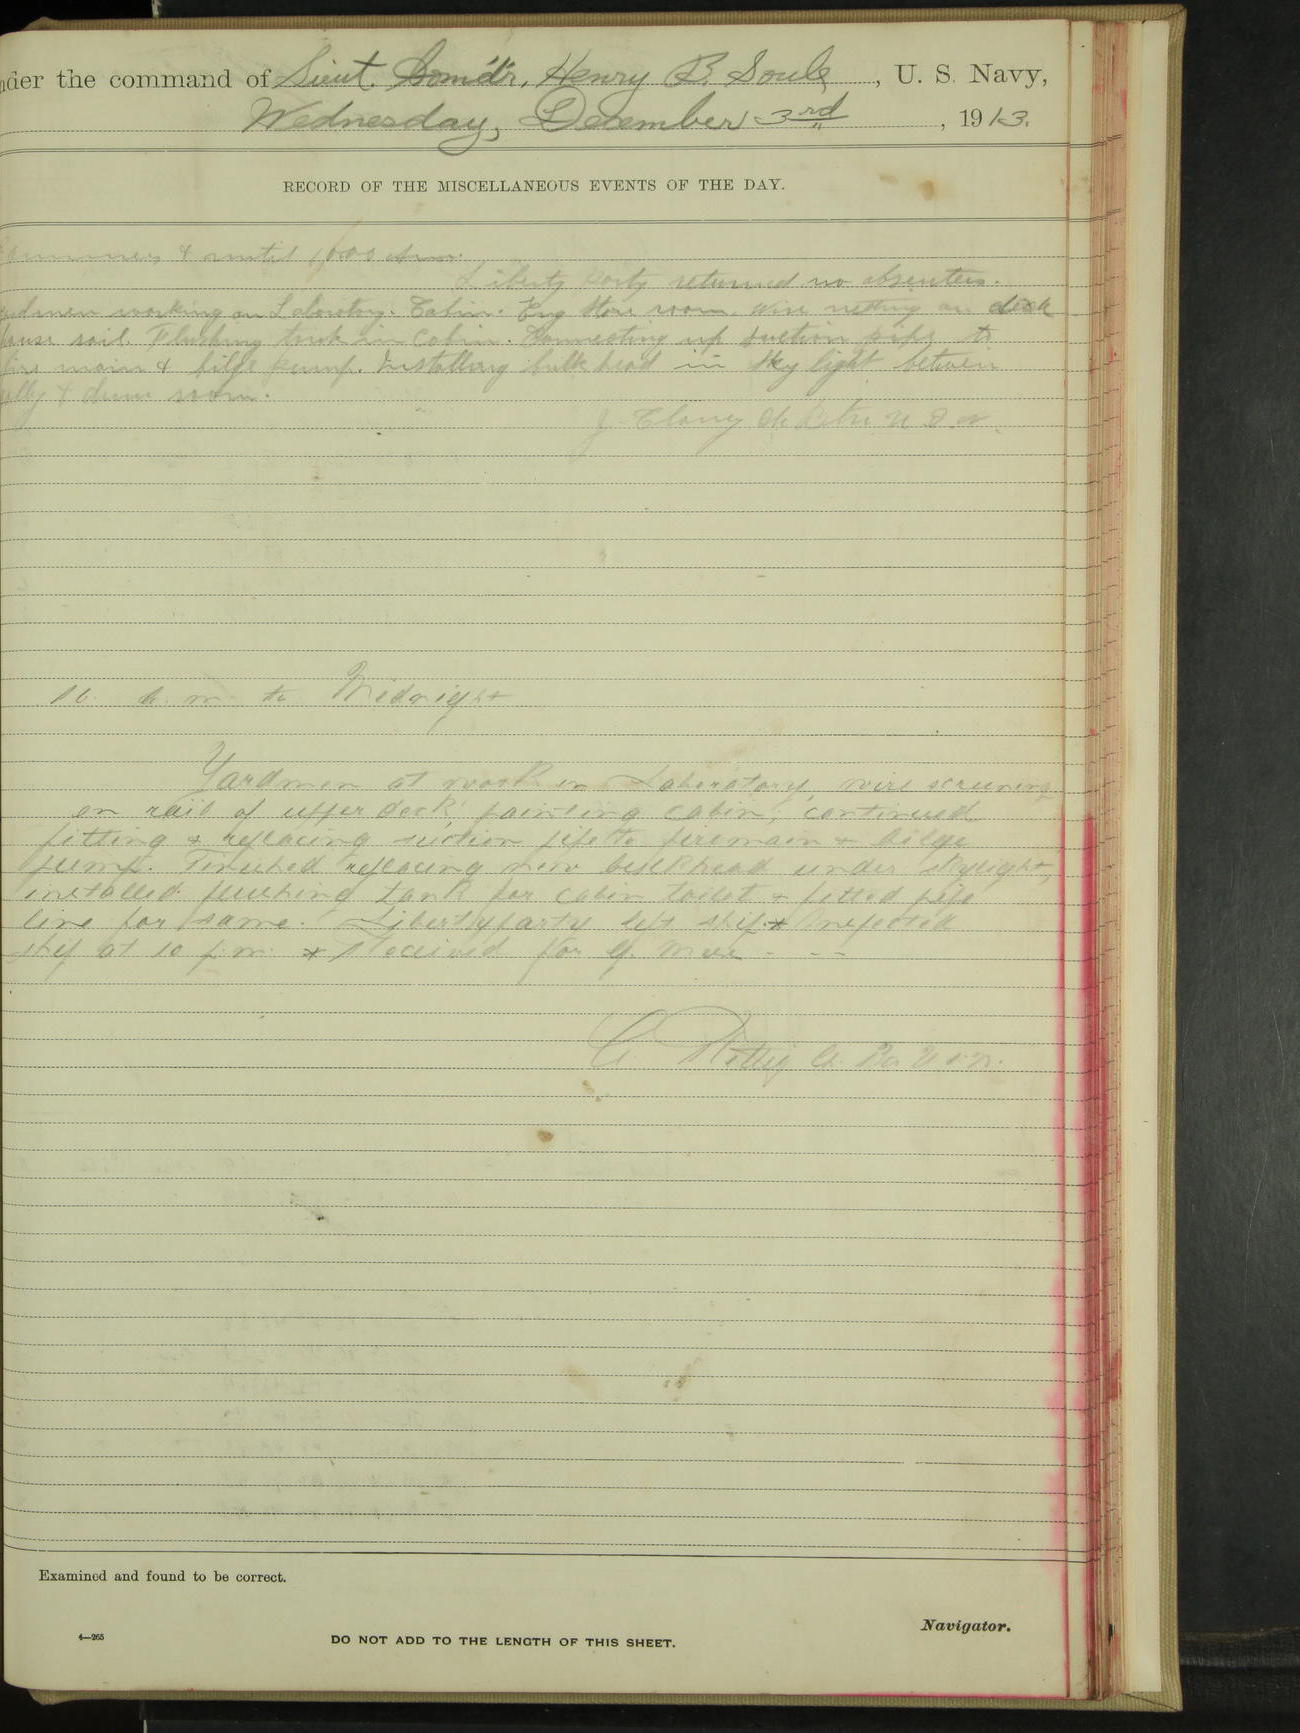 nder the command of Lieut. Comd'r, Henry B. Soule, U. S. Navy,
Wednesday, December 3rd, 1913.
RECORD OF THE MISCELLANEOUS EVENTS OF THE DAY.
& until 10.00 Am.
Liberty Party returned no absentees.
working on Laboratory. Cabin. Eng Store room. Wire netting on deck
house rail. Flushing tank in Cabin. Connecting up suction pipe to
fire main & bilge pump. Installing bulkhead in sky light between
& room.
J. Clancy U.S.N.
10 a.m. to Midnight
Yardmen at work in Laboratory, wire screening
on rail of upper deck, painting cabin; continued
fitting & replacing suction pipe to firemain & bilge
pump. Finished replacing new bulkhead under skylight,
installed flushing tank for cabin toilet & fitted pipe
line for same. Liberty party left ship. * Inspected
ship at 10 p.m. * Received for G. - - -
C U.S.N.
Examined and found to be correct.
Navigator.
4—265
DO NOT ADD TO THE LENGTH OF THIS SHEET.